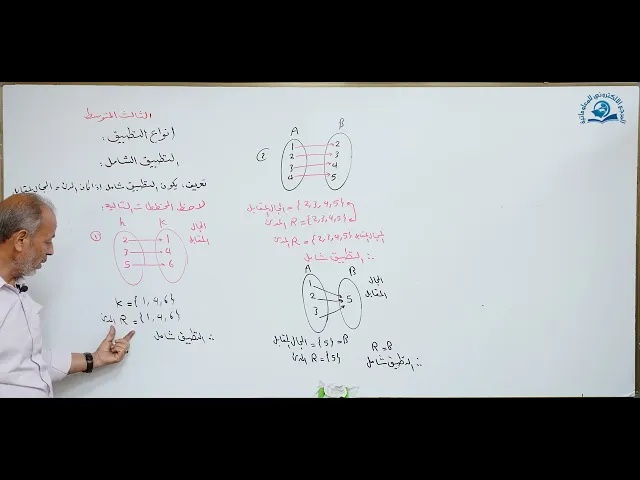 الثالث المتوسط
انواع التطبيق:
التطبيق الشامل:
تعريف: يكون التطبيق شامل اذا كان المدى = المجال المقابل
لاحظ المخططات التالية:
①
k
2
3
5
1
4
6
المجال المقابل
k = {1, 4, 6}
المدى R = {1, 4, 6}
∴ التطبيق شامل
A
B
1
2
3
4
2
3
4
5
{2, 3, 4, 5} = المجال المقابل
المدى R = {2, 3, 4, 5}
المجال المقابل {2, 3, 4, 5} = R المدى
∴ التطبيق شامل
A
B
1
2
3
5
المجال المقابل
المجال المقابل = {5} = B
المدى R = {5}
R = B
∴ التطبيق شامل